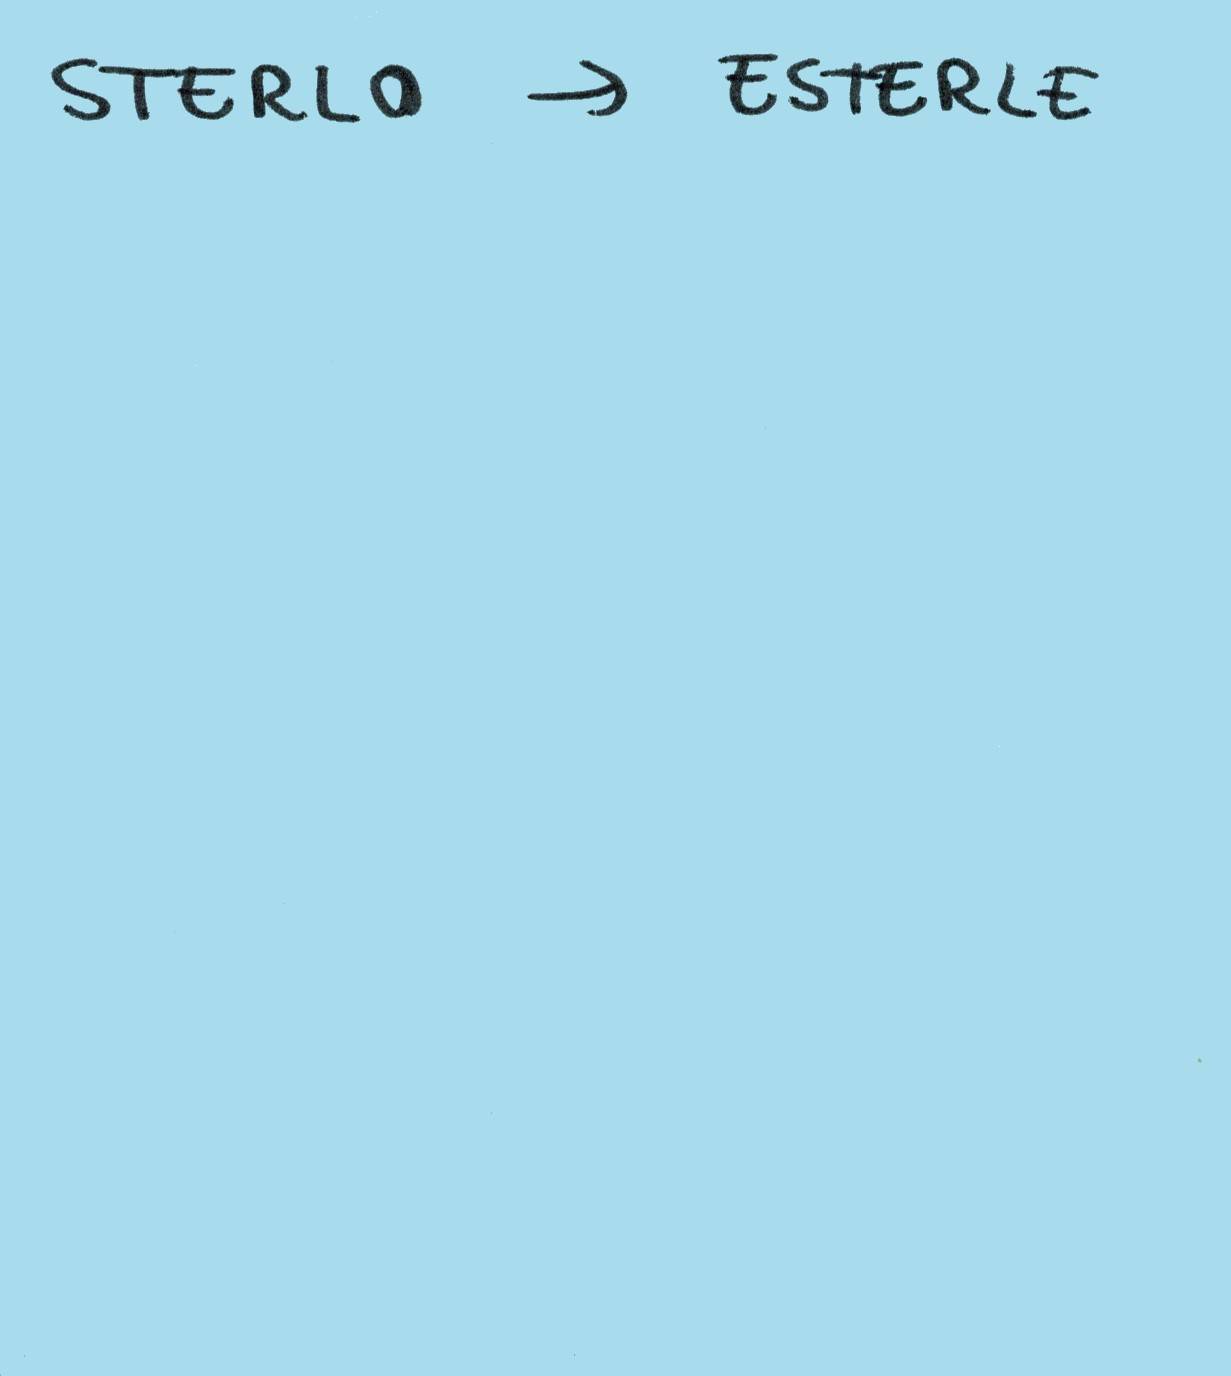 STERLO → ESTERLE